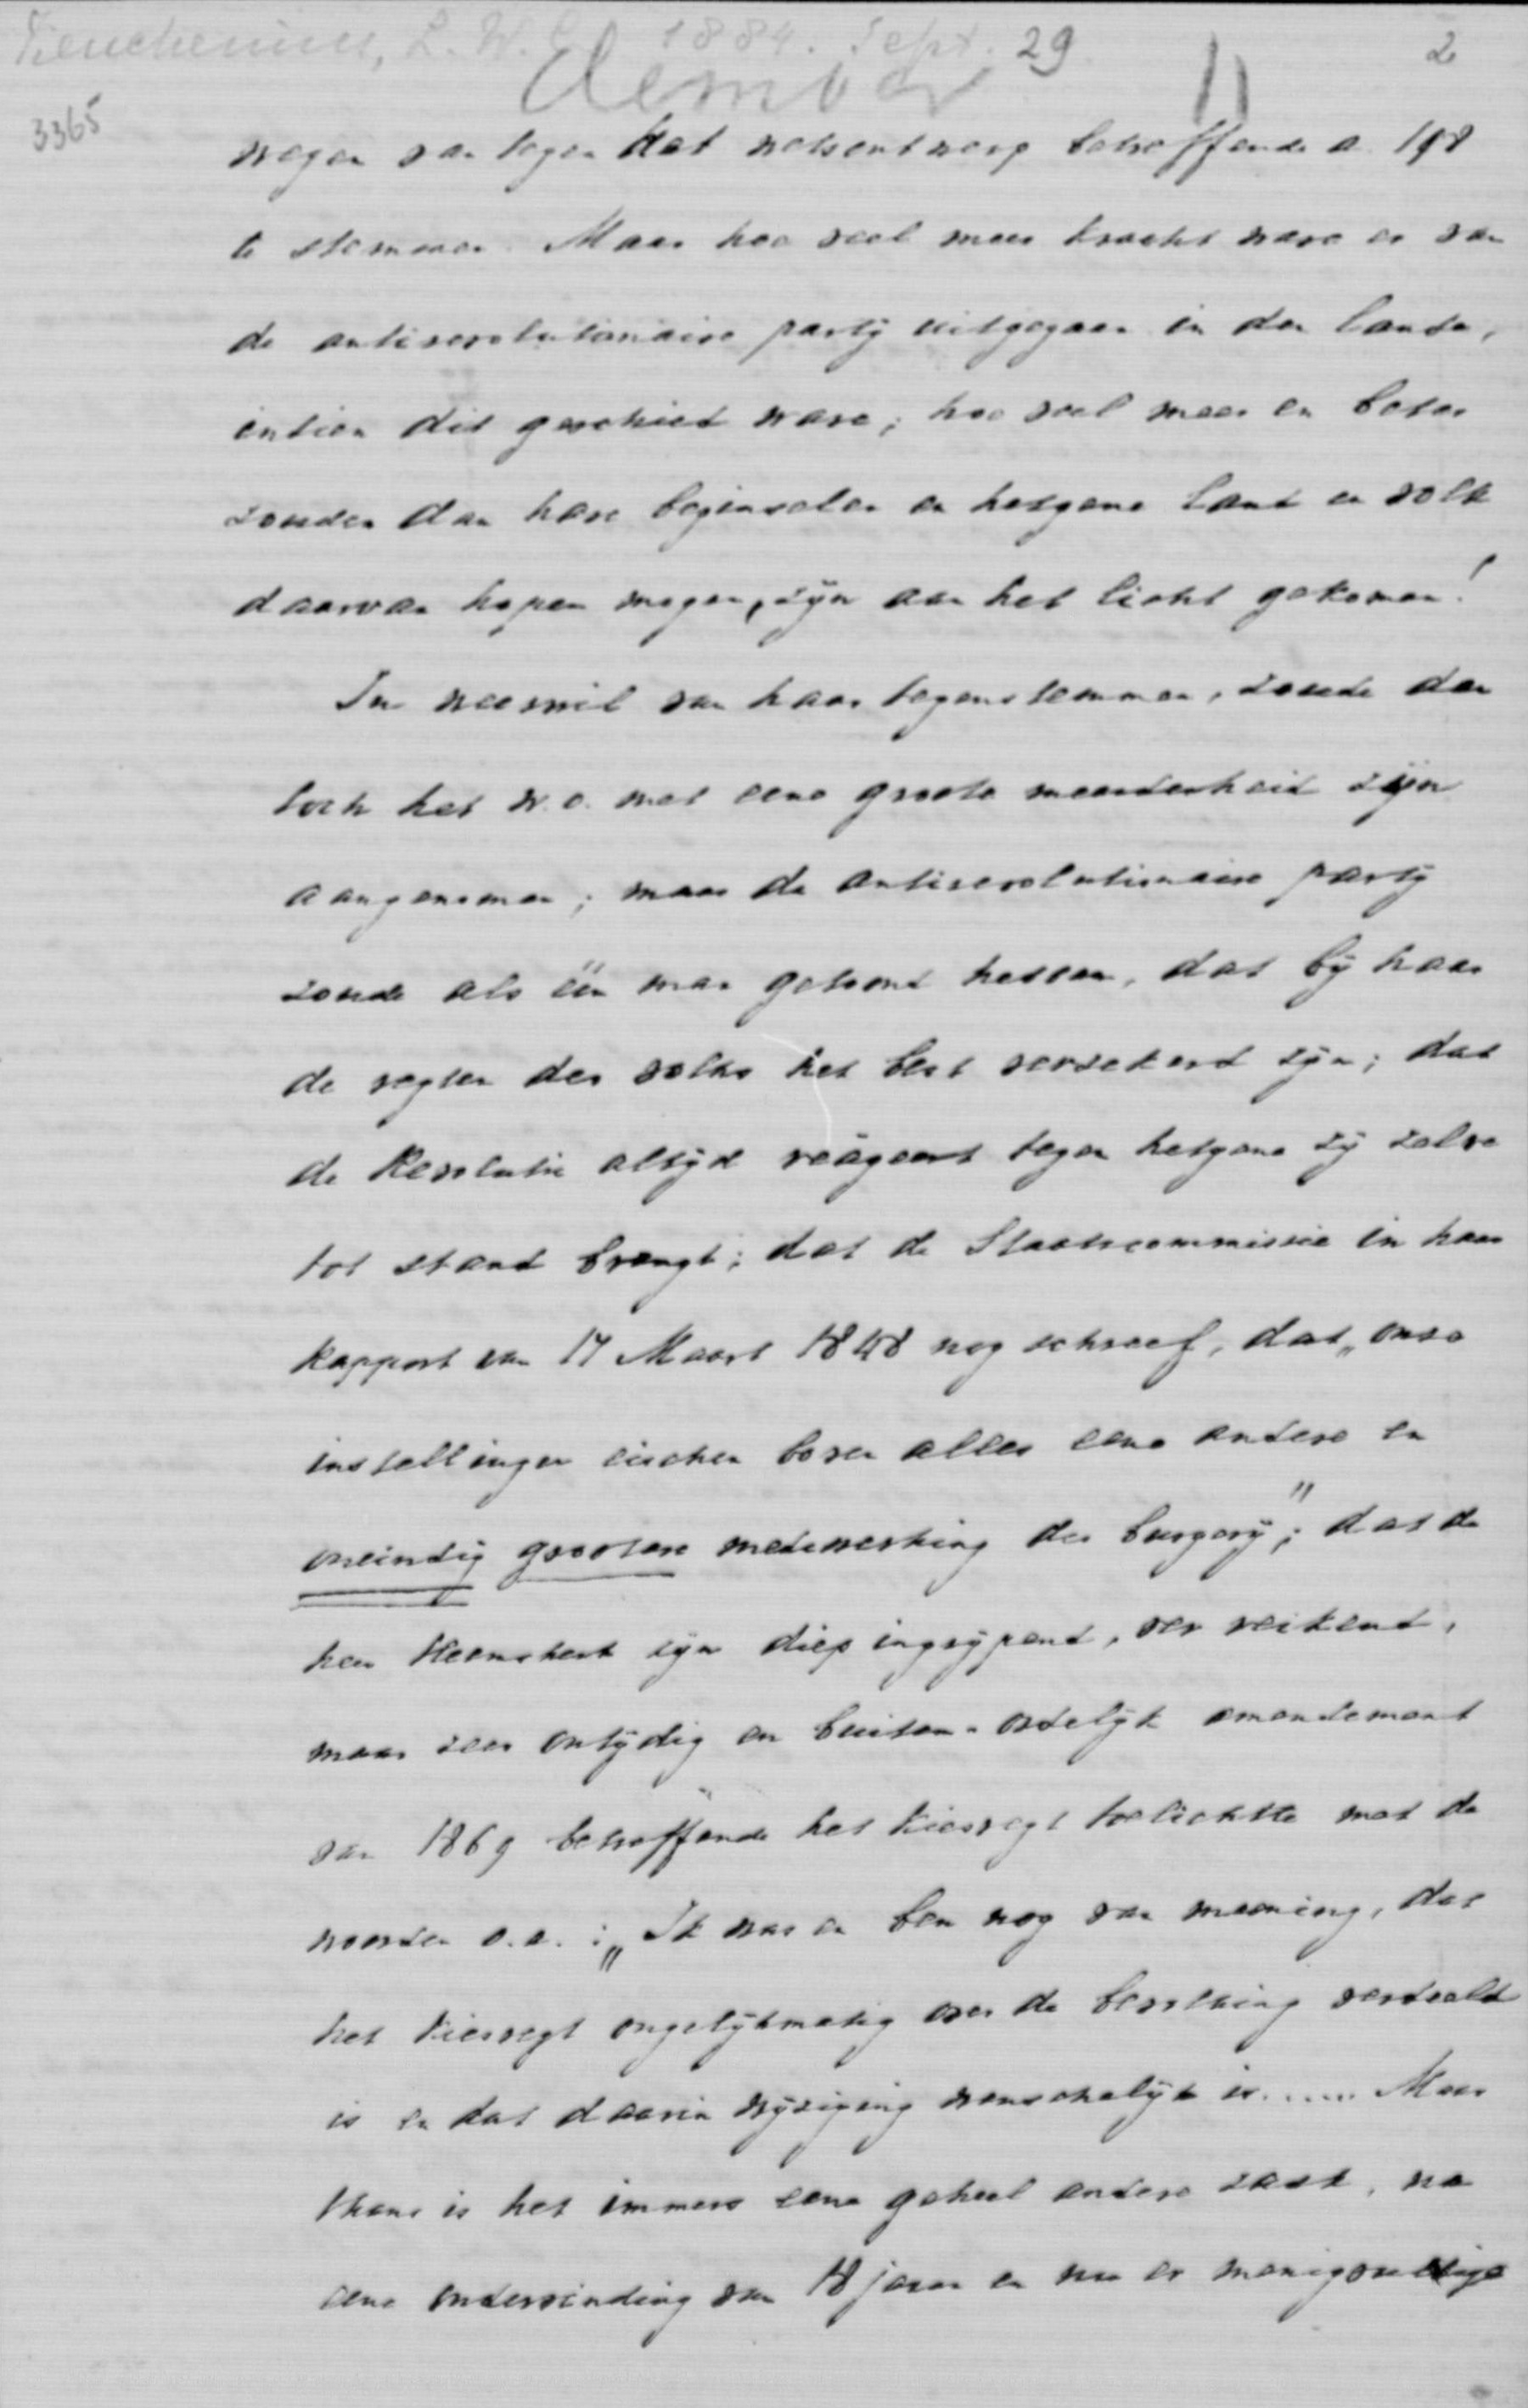 Keuchenius, L.W.C. 1884. Sept. 29 2
3365
wegen van tegen het wetsontwerp betreffende a. 198
te stemmen. Maar hoe veel meer kracht ware er van
de antirevolutionaire partij uitgegaan in den lande,
indien dit geschied ware; hoe veel meer en beter
zouden dan hare beginselen en hetgene land en volk
daarvan hopen mogen, zijn aan het licht gekomen!
In weerwil van haar tegenstemmen, zoude dan
toch het w.o. met eene groote meerderheid zijn
aangenomen; maar de antirevolutionaire partij
zoude als één man getoond hebben, dat bij haar
de regten des volks het best verzekerd zijn; dat
de Revolutie altijd reägeert tegen hetgene zij zelve
tot stand brengt; dat de Staatscommissie in haar
Rapport van 17 Maart 1848 nog schreef, dat „onze
instellingen eischen boven alles eene andere en
oneindig grootere medewerking der burgerij"; dat de
heer Heemskerk zijn diep ingrijpend, ver reikend,
maar zeer ontijdig en buiten-ordelijk amendement
van 1869 betreffende het kiesregt toelichtte met de
woorden o.a.: „Ik was en ben nog van meening, dat
het kiesregt ongelijkmatig over de bevolking verdeeld
is en dat daarin wijziging wenschelijk is..... Maar
thans is het immers eene geheel andere zaak, na
eene ondervinding van 18 jaren en nu er menigvuldige